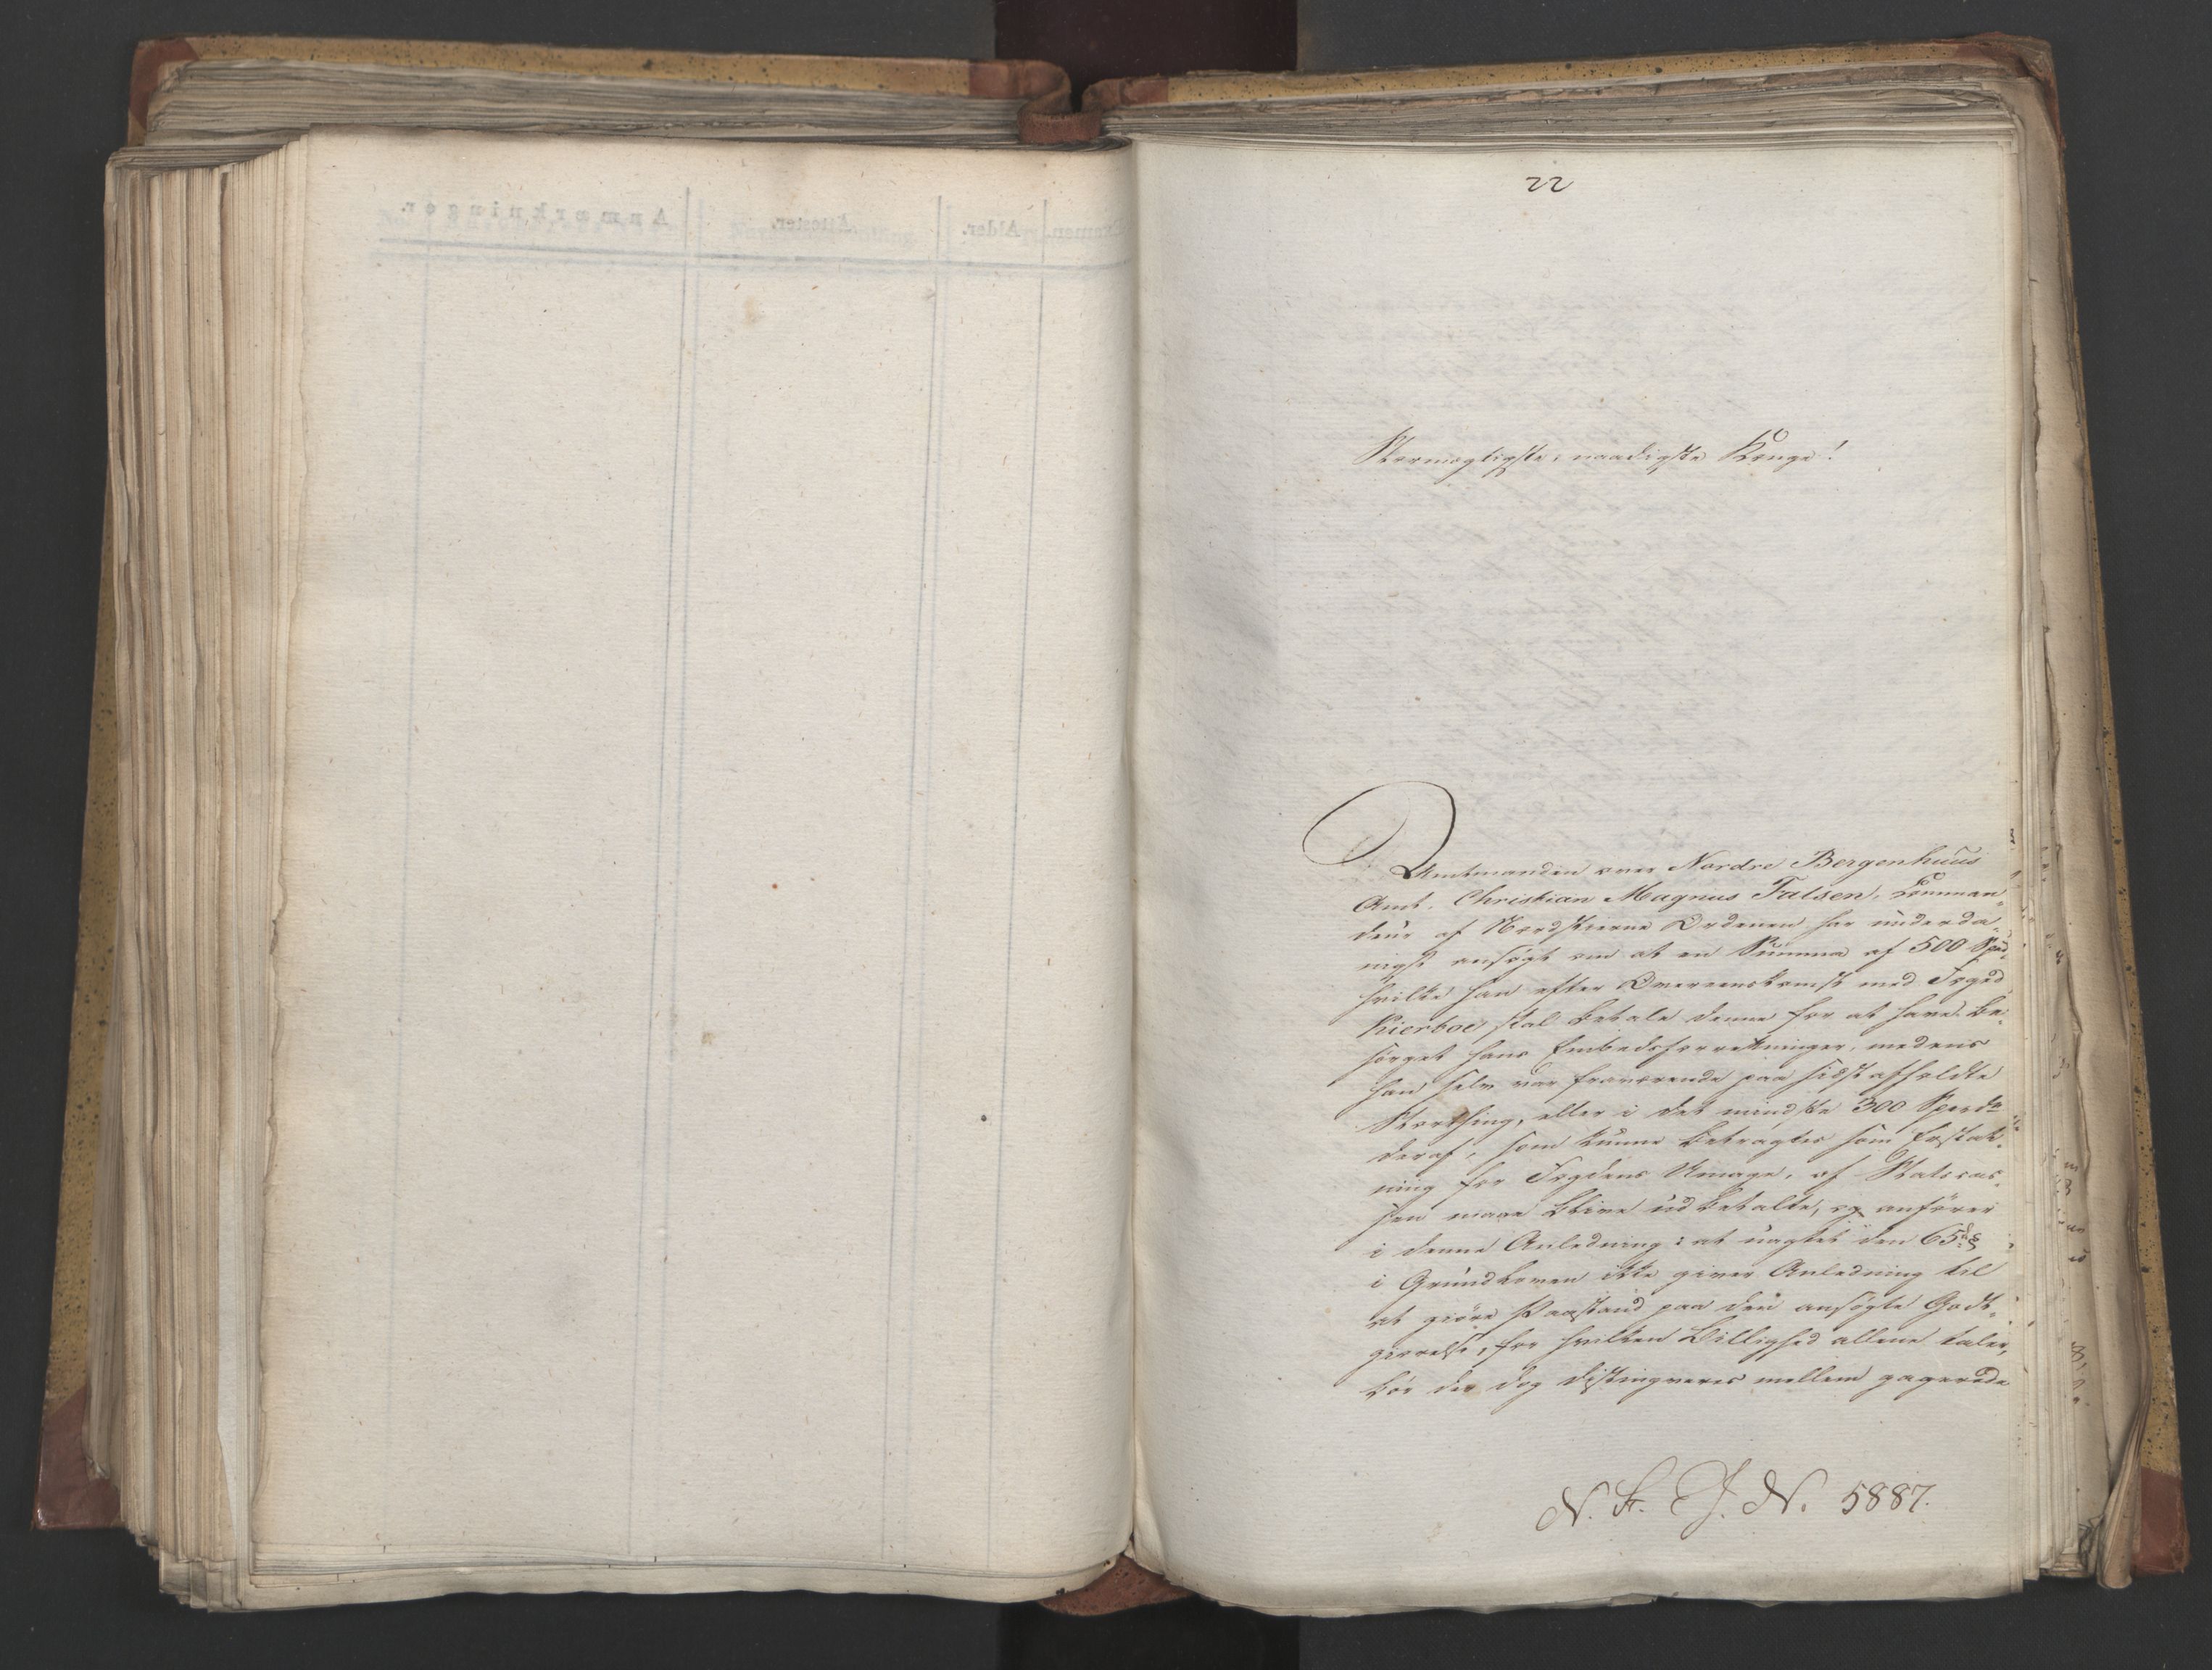 22
Stormægtigste, naadigste Konge!
Amtmanden over Nordre Bergenhuus
Amt, Christian Magnus Falsen, Comman-
deur af Nordstierne Ordenen har underda-
nigst ansøgt om at en Summa af 500 Spd,
hvilke han efter Overeenskomst med Foged
Kierboe, skal betale denne for at have be-
sørget hans Embedsforretninger, medens
han selv var fraværende paa sidst afholdte
Storthing, eller i det mindste 300 Spesdr
deraf, som kunne betragtes som Erstat-
ning for Fogdens Umage, af Statscas-
sen maae blive udbetalte, og anfører
i denne Anledning: at uagtet den 65de §
i Grundloven ikke giver Anledning til
at giøre Paastand paa den ansøgte Godt-
giørelse, for hvilken Billighed allene taler,
bør der dog distingveres mellem gagerede
N. F. J. N. 5887.
Anmærkninger.
Attester.
Alder.
Examen.